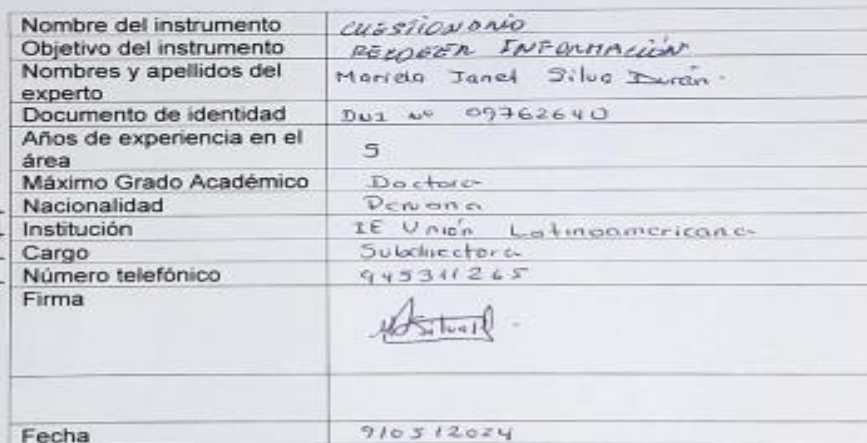 Nombre del instrumento CUESTIONARIO
Objetivo del instrumento RECOGER INFORMACIÓN
Nombres y apellidos del Mariela Janet Silva Durán.
experto
Documento de identidad DNI Nº 09762640
Años de experiencia en el 5
área
Máximo Grado Académico Doctora
Nacionalidad Peruana
Institución IE Unión Latinoamericana
Cargo Subdirectora
Número telefónico 945311265
Firma
Fecha 9/05/2024